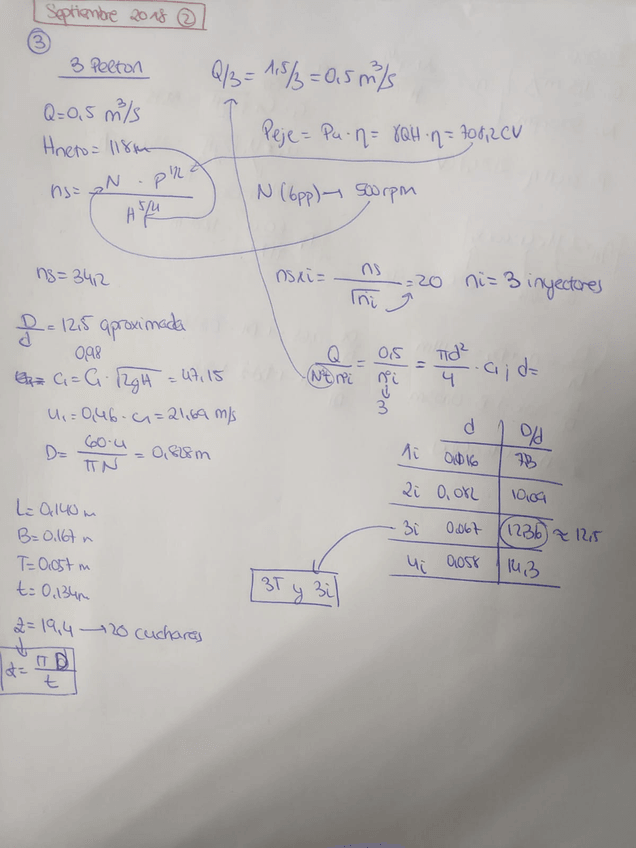 Septiembre 2018 ②
③
3 Pelton
Q/3 = 1,5/3 = 0,5 m³/s
Q=0,5 m³/s
Hneto = 118m
Peje = Pu · η = γQH · η = 708,2 CV
ns = N · P^1/2 / H^5/4
N (6pp) → 500 rpm
ns = 34,2
ns,1i = ns / √ni = 20 ni = 3 inyectores
D/d = 12,5 aproximada
Q / Nt·ni = 0,5 / ni = πd²/4 · c₁ ; d=
3
0,98
c₁ = C₁ · √2gH = 47,15
u₁ = 0,46 · c₁ = 21,69 m/s
D = 60·u / πN = 0,828 m
d D/d
1i 0,0116 7,13
2i 0,082 10,09
3i 0.067 12,36 ≈ 12,5
4i 0,058 14,3
3T y 3i
L = 0,140 m
B = 0,167 m
T = 0,057 m
t = 0,134m
z = 19,4 → 20 cucharas
z = πD / t